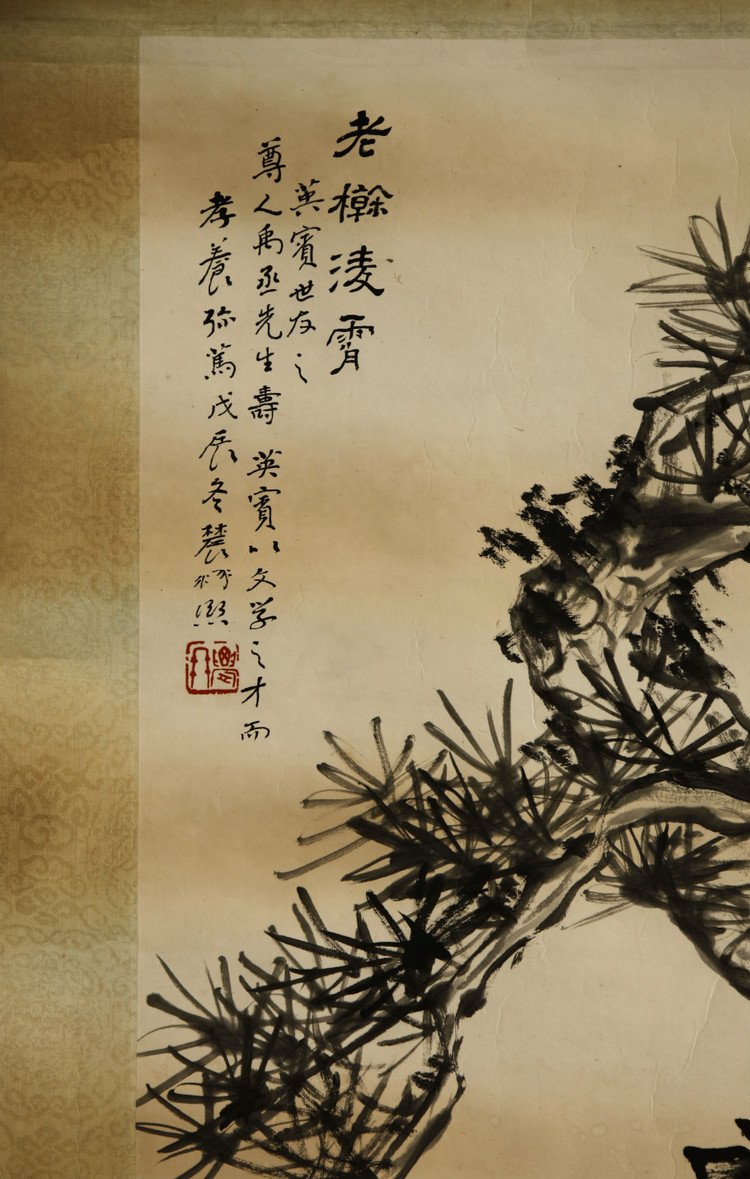 老榦淩霄
英賓世友之
尊人禹丞先生壽 英賓以文学之才而
孝養弥篤戊辰冬辳髯熙